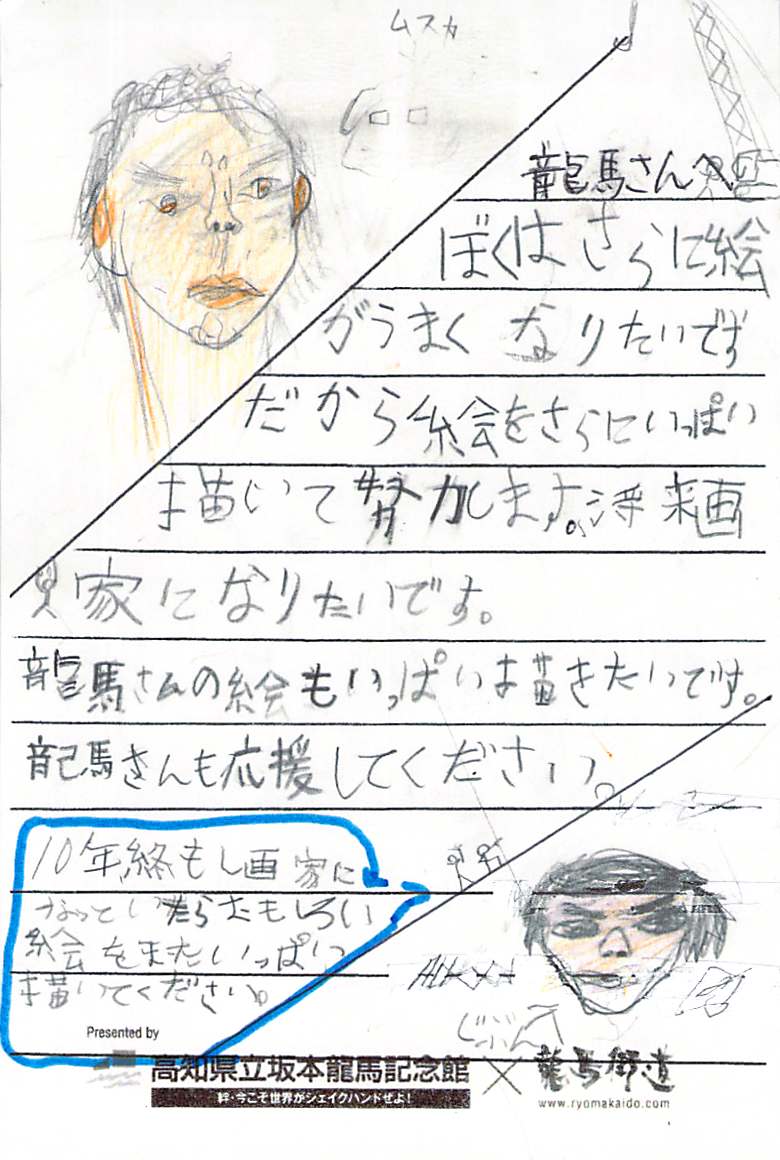 ムスカ
龍馬さんへ
ぼくはさらに絵
がうまくなりたいです
だから絵をさらにいっぱい
描いて努力します。将来画
家になりたいです。
龍馬さんの絵もいっぱい描きたいです。
龍馬さんも応援してください。
10年終もし画家に
なっていたらおもしろい
絵をまたいっぱい
描いてください。
じぶんへ
Presented by
高知県立坂本龍馬記念館×龍馬街道
絆・今こそ世界がシェイクハンドぜよ!
www.ryomakaido.com